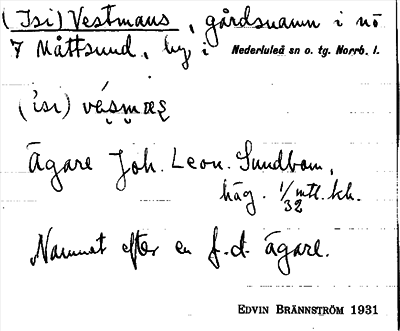 (Isi) Vestmans, gårdsnamn i nö
7 Måttsund, by i Nederluleå sn o. tg. Norrb. l.
(ìsi)
Ägare Joh. Leon. Sundbom,
häg. 1/32 mtl. kh.
Namnat efter en f.d. ägare.
EDVIN BRÄNNSTRÖM 1931